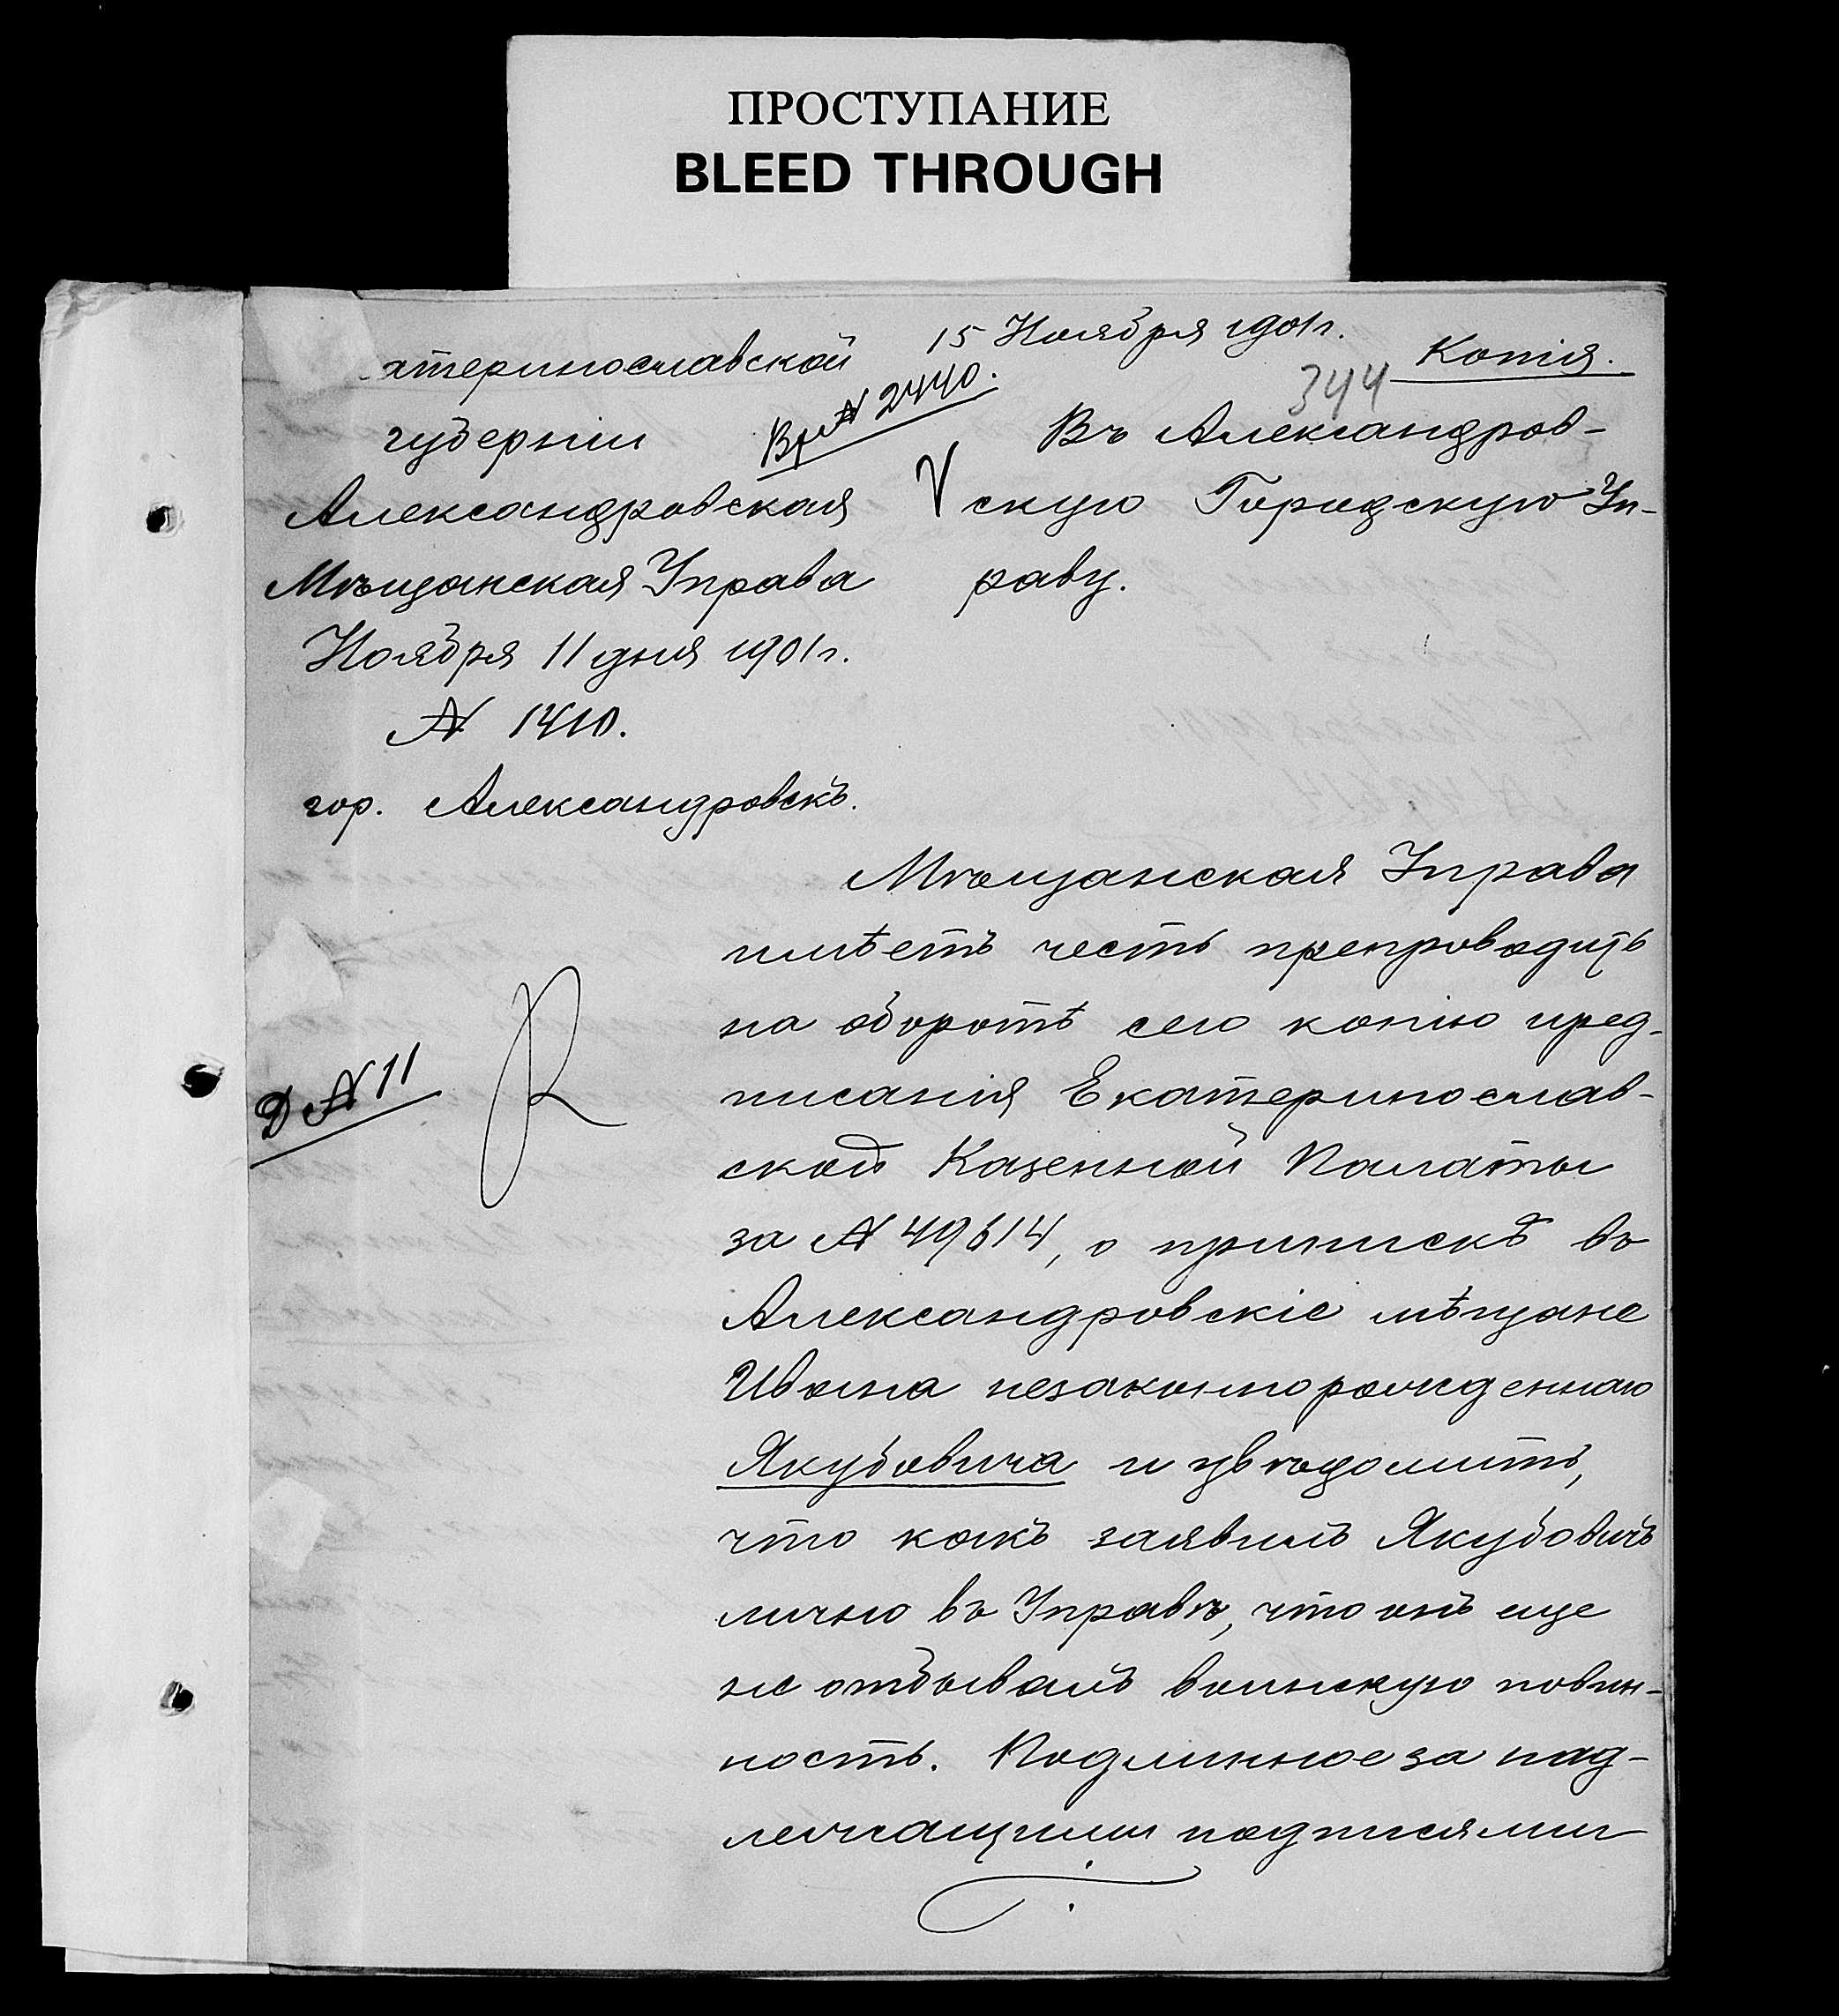 ПРОСТУПАНИЕ
BLEED THROUGH
15 Ноября 1901 г.
Копія.
344
атеринославской
губерніи
Вх № 2440.
Александровская
Мѣщанская Управа
Ноября 11 дня 1901 г.
№ 1410.
гор. Александровскъ.
Въ Александров-
скую Городскую Уп-
раву.
Мѣщанская Управа
имѣетъ честь препроводить
на оборотѣ сего копію пред-
писанія Екатеринослав-
ской Казенной Палаты
за № 49614, о припискѣ въ
Александровскіе мѣщане
Ивана незаконнорожденнаго
Якубовича и увѣдомить,
что какъ заявилъ Якубовичъ
лично въ Управѣ, что онъ еще
не отбывалъ воинскую повин-
ность. Подлинное за над-
лежащими подписями
Д № 11